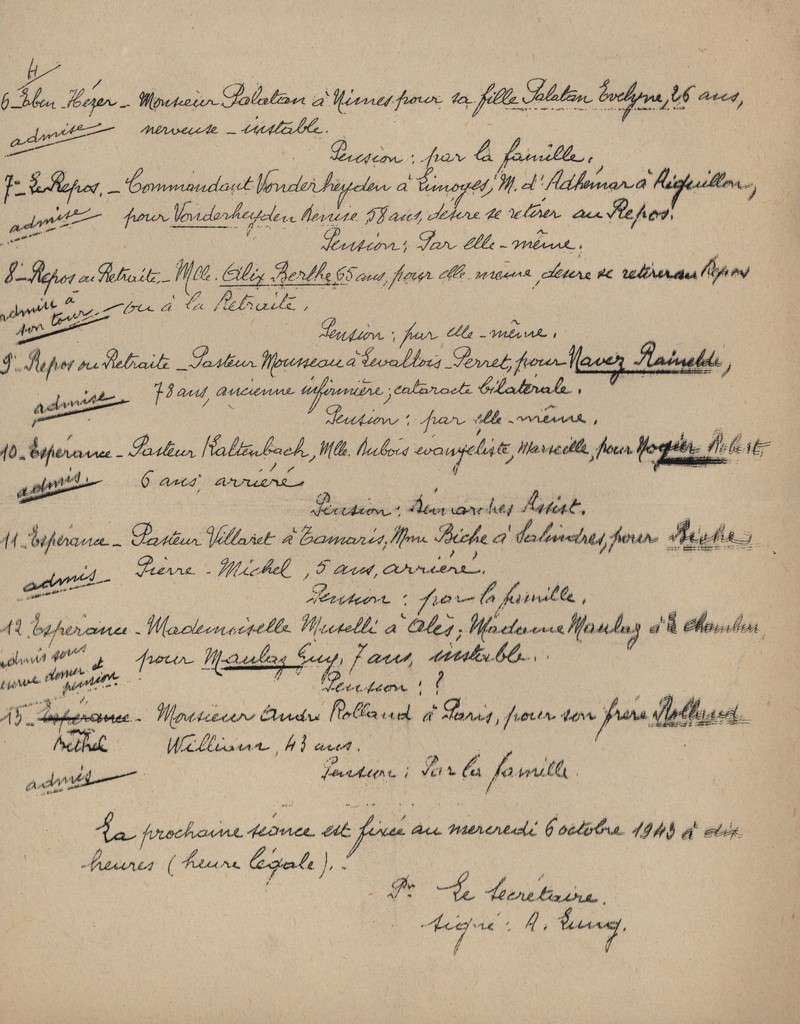 4
6 - Eben-Hézer - Monsieur Palatan à Nimes pour sa fille Palatan Evelyne, 26 ans,
admise nerveuse - instable.
Pension : par la famille.
7 - Le Repos. - Commandant Vonderheyden à Limoges, M. d'Adhémar à Aiguillon,
admise pour Vonderheyden Denise 58 ans, désire se retirer au Repos.
Pension : Par elle-même.
8 - Repos ou Retraite. - Mlle. Alix Berthe, 65 ans, pour elle même, désire se retirer au Repos
admise à son tour. - ou à la Retraite.
Pension : par elle-même.
9 - Repos ou Retraite - Pasteur Mousseau à Levallois-Perret, pour Navez Rainelde,
admise 78 ans, ancienne infirmière, cataracte bilatérale.
Pension : par elle-même.
10 - Espérance - Pasteur Kaltenbach, Mlle. Dubois évangéliste, Marseille, pour Nogier Robert,
admis. 6 ans, arriéré
Pension : Démarches Assist.
11 - Espérance - Pasteur Villaret à Tamaris, Mme Biche à Salindres, pour Biche
admis Pierre-Michel, 5 ans, arriéré.
Pension : par la famille.
12 Espérance - Mademoiselle Muselli à Alès, Madame Maulaz à
admis sous réserve et pension pour Maulaz Guy, 7 ans, instable.
Pension : ?
13 - Espérance - Monsieur André Rolland à Paris, pour son frère Rolland
Béthel William, 43 ans.
admis Pension : Par la famille.
La prochaine séance est fixée au mercredi 6 octobre 1943 à dix
heures (heure légale).
Pr Le Secrétaire.
signé : A. Lung.